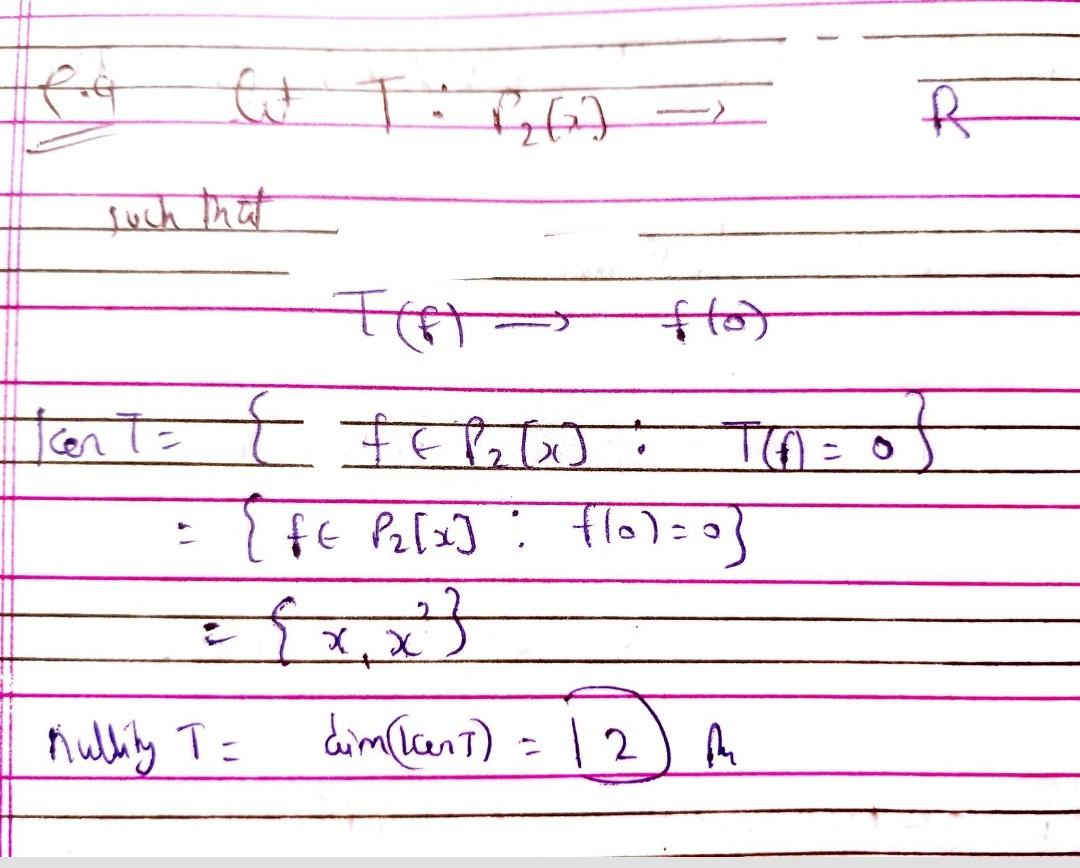 e.g Let T : P₂[x] → R
such that
T(f) → f(0)
ker T = { f ∈ P₂[x] : T(f) = 0 }
= { f ∈ P₂[x] : f(0) = 0 }
= { x, x² }
Nullity T = dim(ker T) = 2